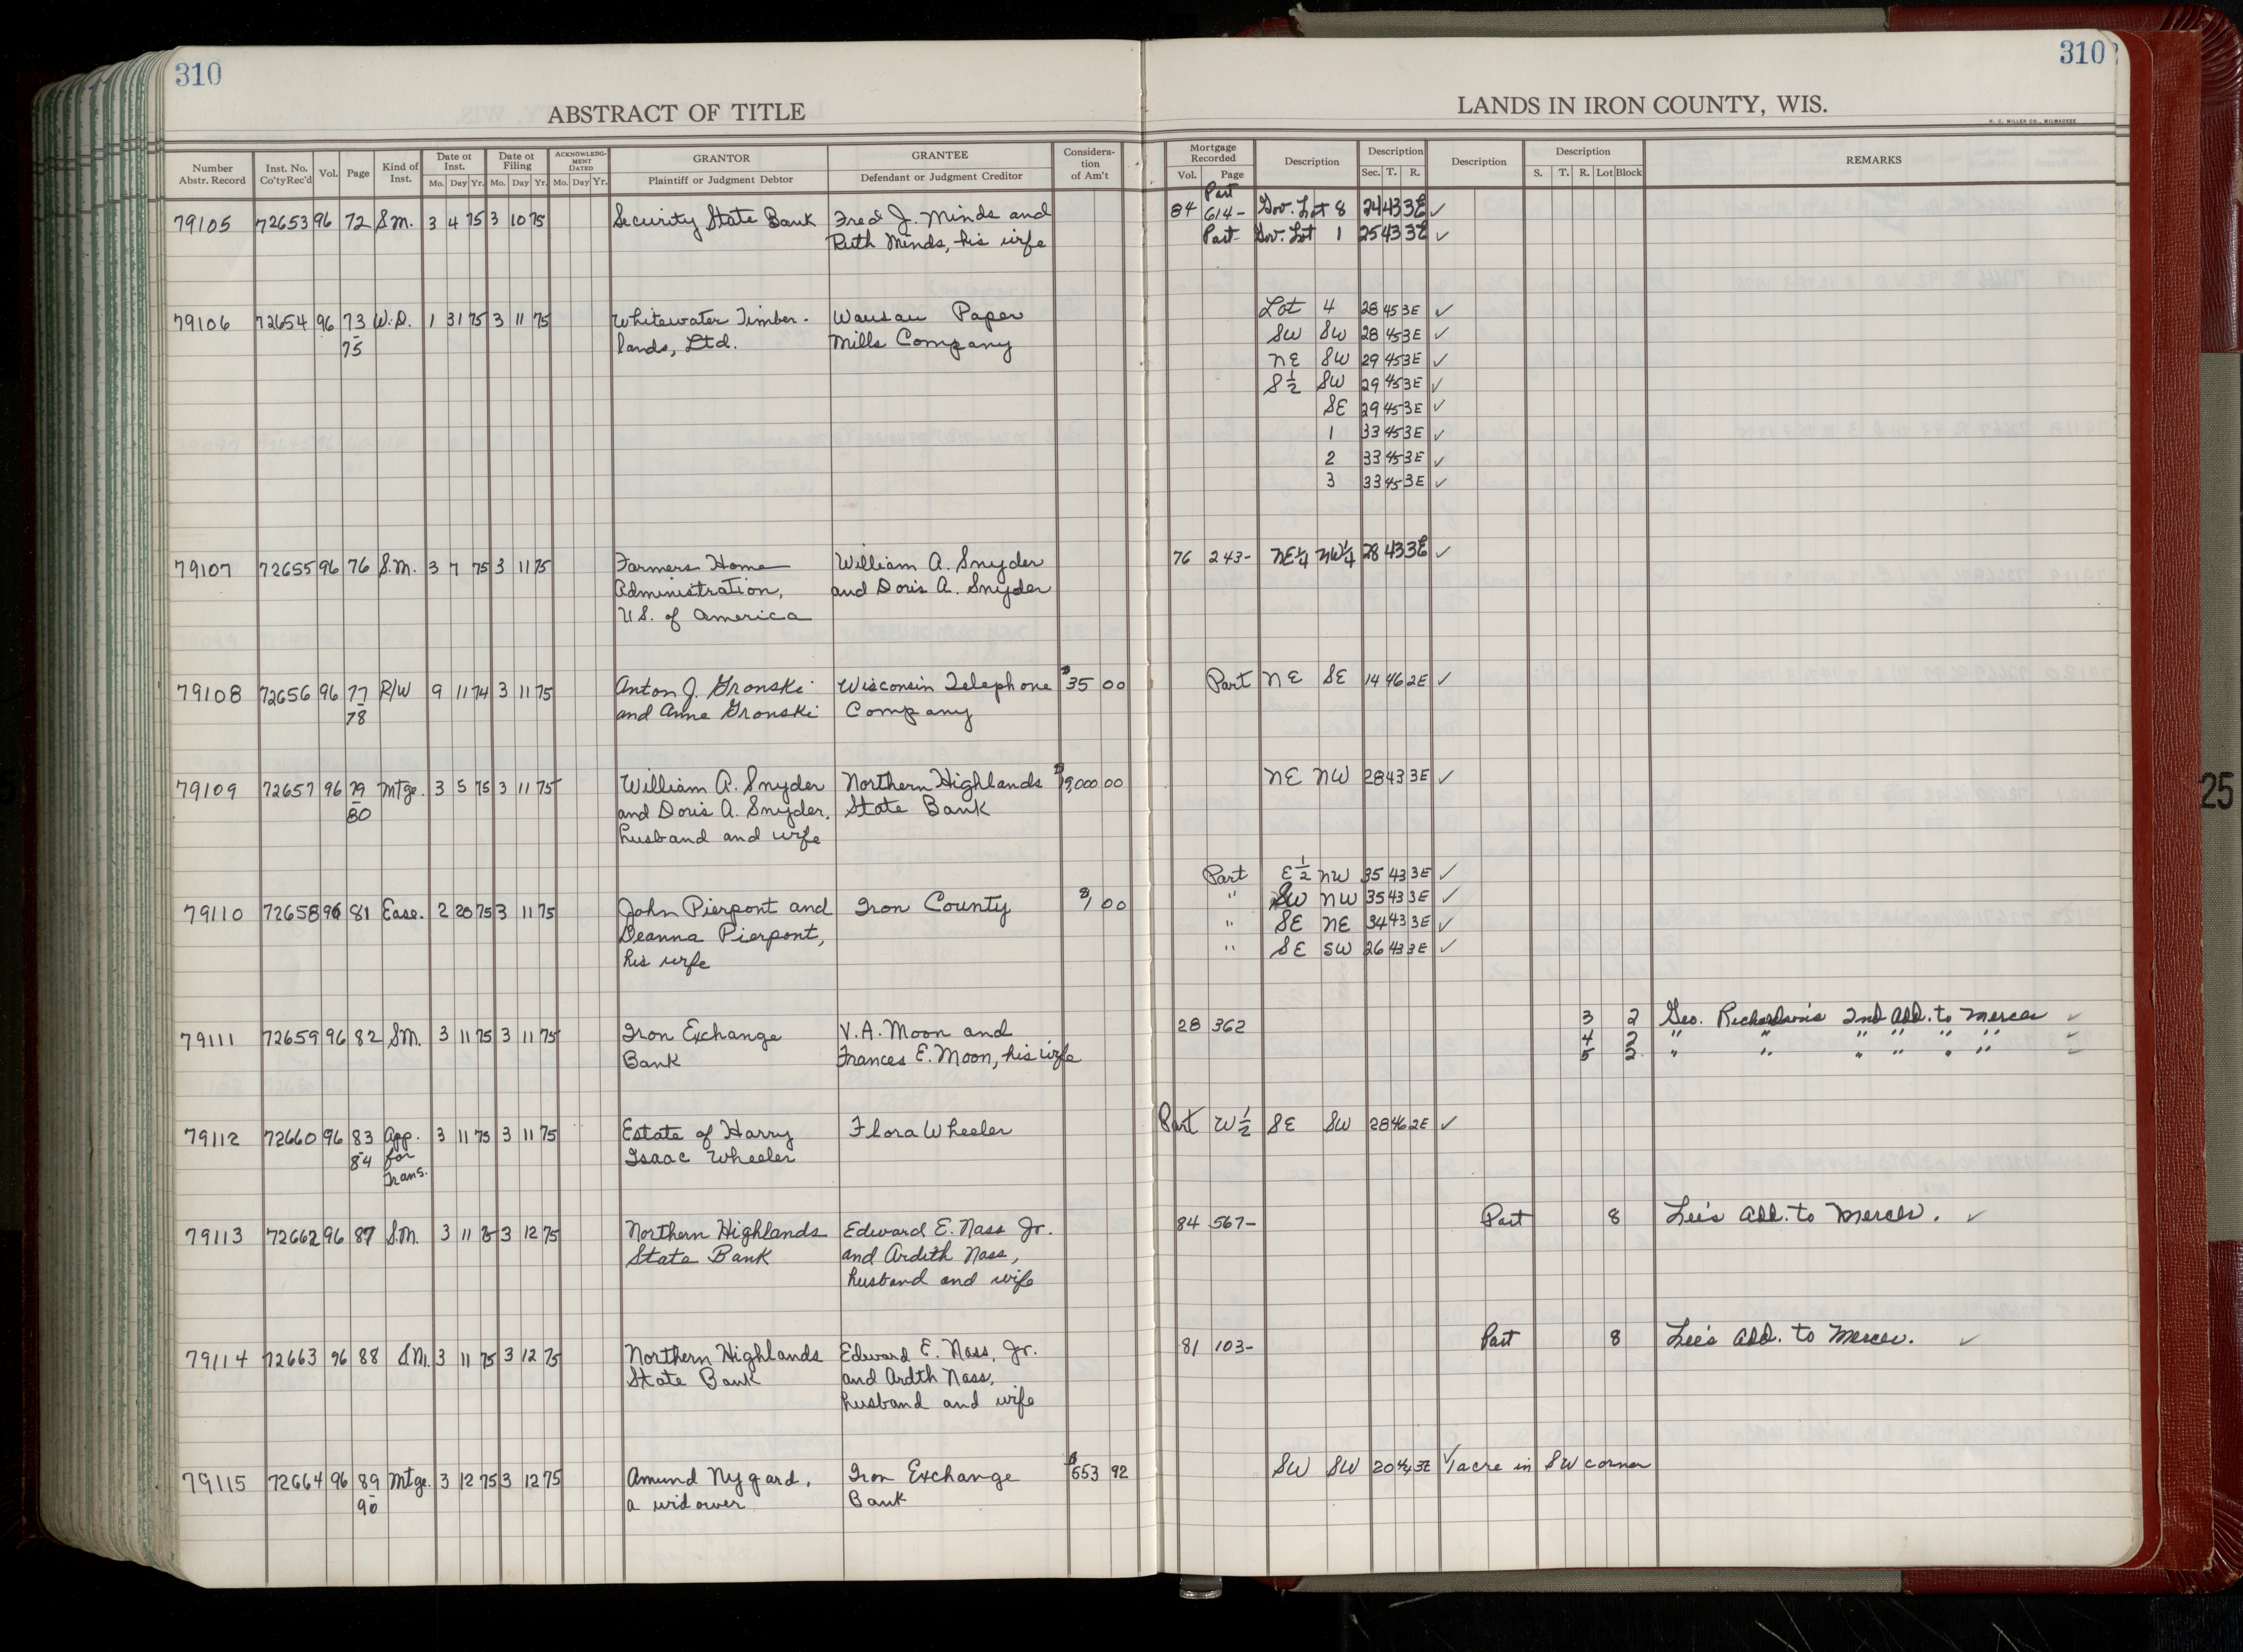 310
310
ABSTRACT OF TITLE
LANDS IN IRON COUNTY, WIS.
H. C. MILLER CO., MILWAUKEE
Number Abstr. Record Inst. No. Co'ty Rec'd Vol. Page Kind of Inst. Date of Inst. Mo. Day Yr. Date of Filing Mo. Day Yr. ACKNOWLEDGMENT DATED Mo. Day Yr. GRANTOR Plaintiff or Judgment Debtor GRANTEE Defendant or Judgment Creditor Consideration of Am't Mortgage Recorded Vol. Page Description Description Sec. T. R. Description Description S. T. R. Lot Block REMARKS
79105 72653 96 72 S.M. 3 4 75 3 10 75 Security State Bank Fred J. Minds and 84 Part 614- Gov. Lot 8 24 43 3E ✓
Ruth Minds, his wife Part Gov. Lot 1 25 43 3E ✓
Lot 4 28 45 3E ✓
79106 72654 96 73 W.D. 1 31 75 3 11 75 Whitewater Timber- Wausau Paper SW SW 28 45 3E ✓
- 75 lands, Ltd. Mills Company NE SW 29 45 3E ✓
S½ SW 29 45 3E ✓
SE 29 45 3E ✓
1 33 45 3E ✓
2 33 45 3E ✓
3 33 45 3E ✓
79107 72655 96 76 S.M. 3 7 75 3 11 75 Farmers Home William A. Snyder 76 243- NE¼ NW¼ 28 43 3E ✓
Administration, and Doris A. Snyder
U.S. of America
79108 72656 96 77 R/W 9 11 74 3 11 75 Anton J. Gronski Wisconsin Telephone $35 00 Part NE SE 14 46 2E ✓
- 78 and Anne Gronski Company
79109 72657 96 79 Mtge. 3 5 75 3 11 75 William A. Snyder Northern Highlands $19,000 00 NE NW 28 43 3E ✓
- 80 and Doris A. Snyder, State Bank
husband and wife
Part E½ NW 35 43 3E ✓
79110 72658 96 81 Ease. 2 20 75 3 11 75 John Pierpont and Iron County $1 00 " SW NW 35 43 3E ✓
Deanna Pierpont, " SE NE 34 43 3E ✓
his wife " SE SW 26 43 3E ✓
79111 72659 96 82 S.M. 3 11 75 3 11 75 Iron Exchange V.A. Moon and 28 362 3 2 Geo. Richardson's 2nd Add. to Mercer ✓
4 2 " " " " " " ✓
Bank Frances E. Moon, his wife 5 2 " " " " " " ✓
79112 72660 96 83 App. 3 11 75 3 11 75 Estate of Harry Flora Wheeler Part W½ SE SW 28 46 2E ✓
- 84 for Isaac Wheeler
Trans.
79113 72662 96 87 S.M. 3 11 75 3 12 75 Northern Highlands Edward E. Nass Jr. 84 567- Part 8 Lee's Add. to Mercer. ✓
State Bank and Ardith Nass,
husband and wife
79114 72663 96 88 S.M. 3 11 75 3 12 75 Northern Highlands Edward E. Nass, Jr. 81 103- Part 8 Lee's Add. to Mercer. ✓
State Bank and Ardth Nass,
husband and wife
79115 72664 96 89 Mtge. 3 12 75 3 12 75 Amund Nygard, Iron Exchange $653 92 SW SW 20 44 3E ✓ 1 acre in SW corner
- 90 a widower Bank
25